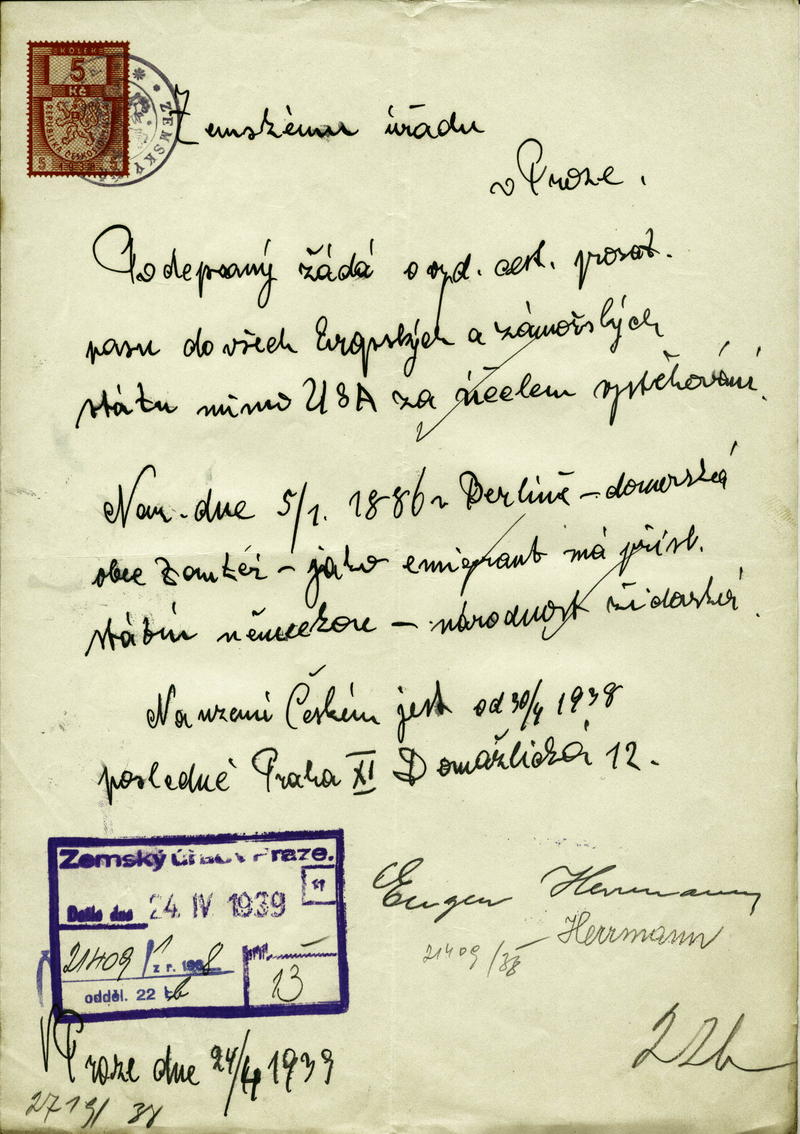 KOLEK
5
Kč
REPUBLIKA ČESKOSLOVENSKÁ
ZEMSKÝ
Zemskému úřadu
v Praze.
Podepsaný žádá o vyd. cest. prosat.
pasu do všech Evropských a zámořských
státu mimo USA za účelem vystěhování.
Nar. dne 5/1. 1886 v Berlíně – domovská
obec – jako emigrant má přísl.
státní německou – národnost židovská.
Na uzemi Českém jest od 30/4 1938
posledně Praha XI Domažlická 12.
Zemský úřad v Praze.
Došlo dne 24. IV 1939
21409/1 z r. 1938
příl.
13
odděl. 22 b
Eugen Herrmann
Herrmann
21409/38
22b
V Praze dne 24/4 1939
2719/38